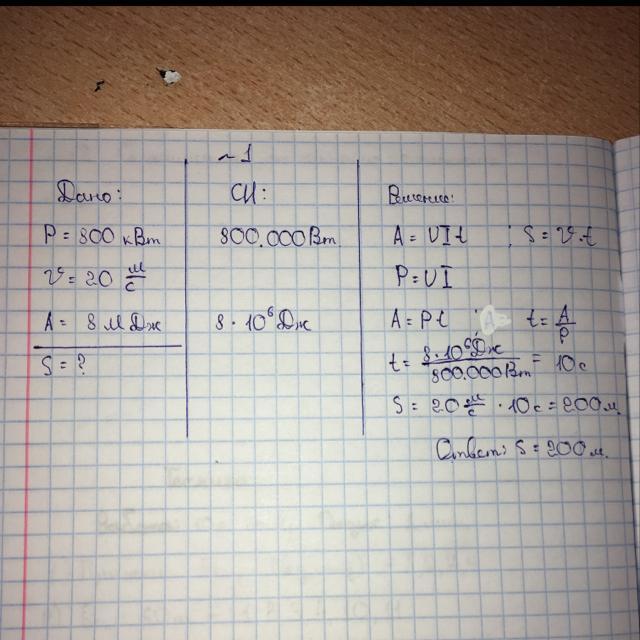 ~1
Дано:
P = 800 кВт
v = 20 м/с
A = 8 МДж
S = ?
СИ:
800.000 Вт
8 · 10⁶ Дж
Решение:
A = UIt ; S = v·t
P = UI
A = Pt t = A/P
t = 8·10⁶Дж/800.000Вт = 10с
S = 20 м/с · 10с = 200м.
Ответ: S = 200м.